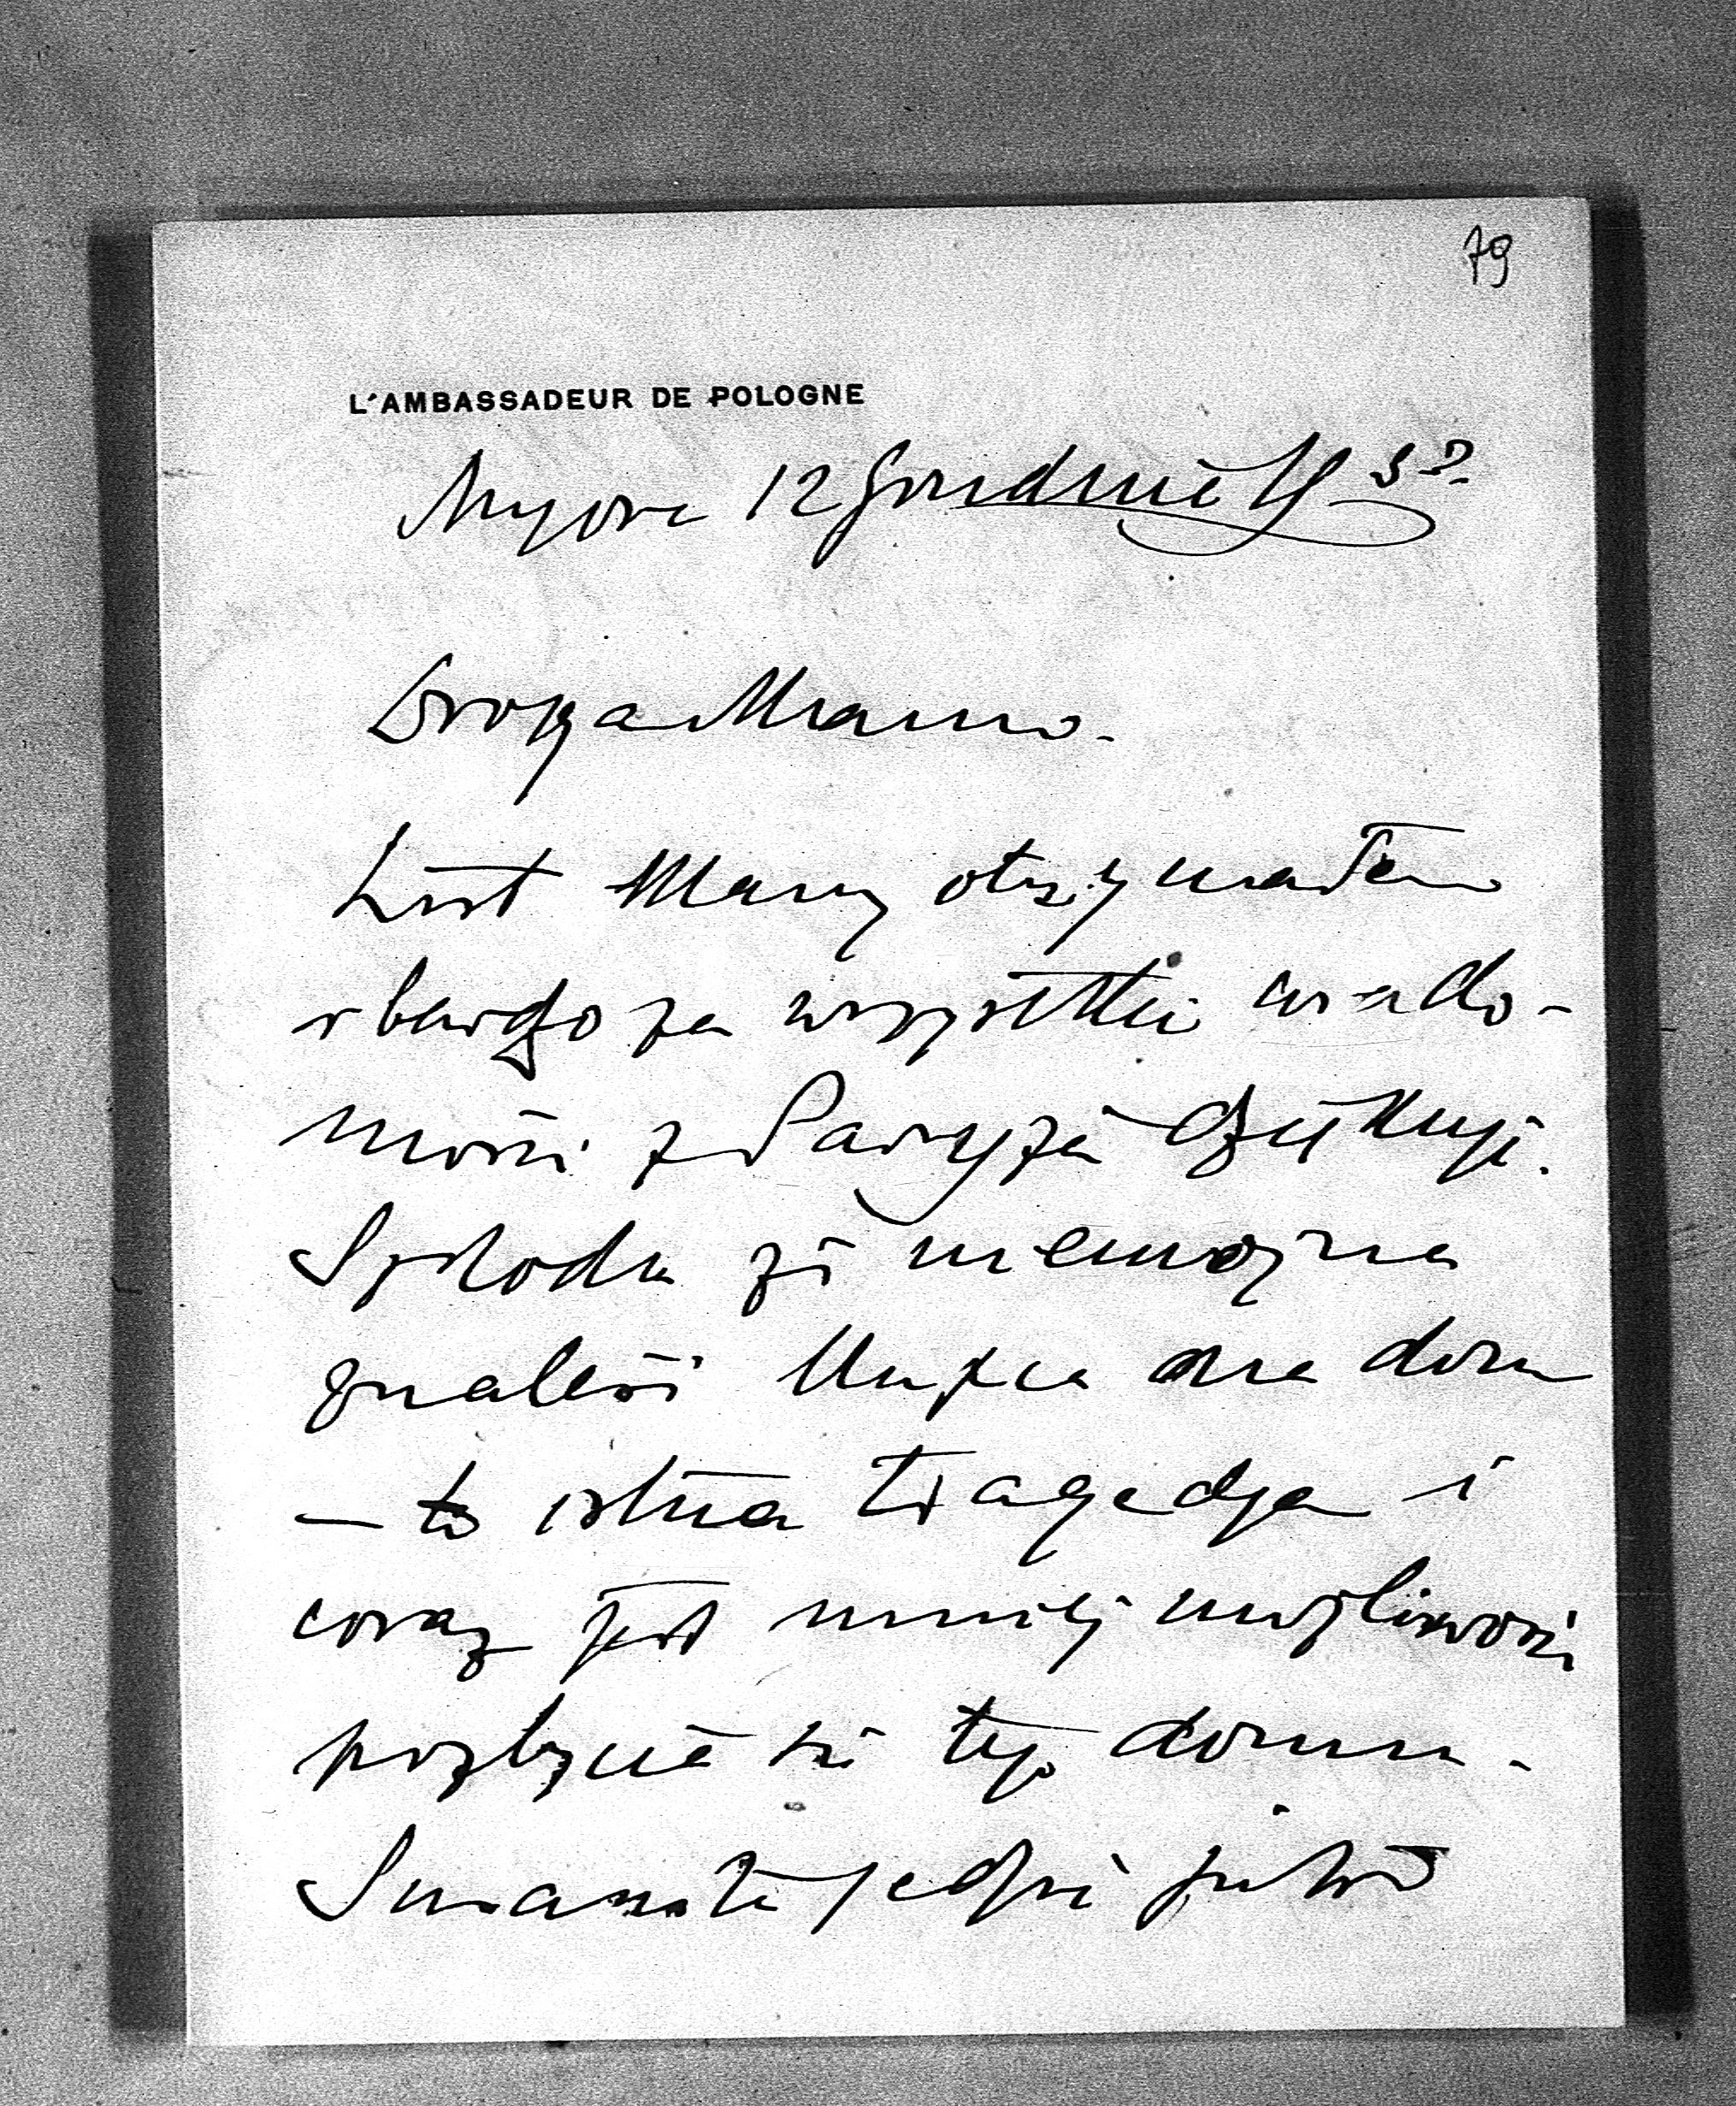 79
L'AMBASSADEUR DE POLOGNE
Angora 12 Grudnia
Droga Mamo.
List Mamy otrzymałem
i bardzo za wszystkie wiado-
mości z Paryża dziękuję.
Szkoda że niemożna
znaleść kupca na dom
— to istna tragedja i
coraz jest mniej możliwości
pozbycia się tego domu.
jedzie jutro